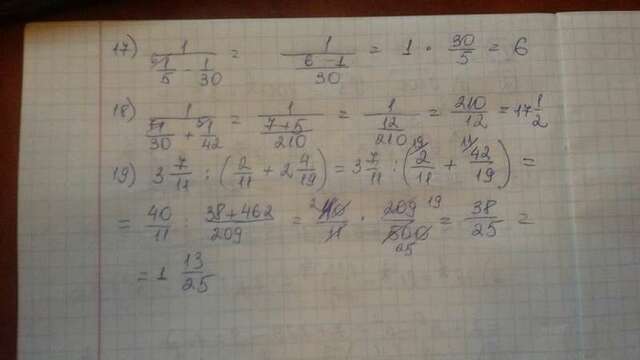 17) 1/(1/5 - 1/30) = 1/((6-1)/30) = 1 · 30/5 = 6
18) 1/(1/30 + 1/42) = 1/((7+5)/210) = 1/(12/210) = 210/12 = 17 1/2
19) 3 7/11 : (2/11 + 2 4/19) = 3 7/11 : (2/11 + 42/19) =
= 40/11 : (38+462)/209 = 40/11 · 209/500 = 38/25 =
= 1 13/25